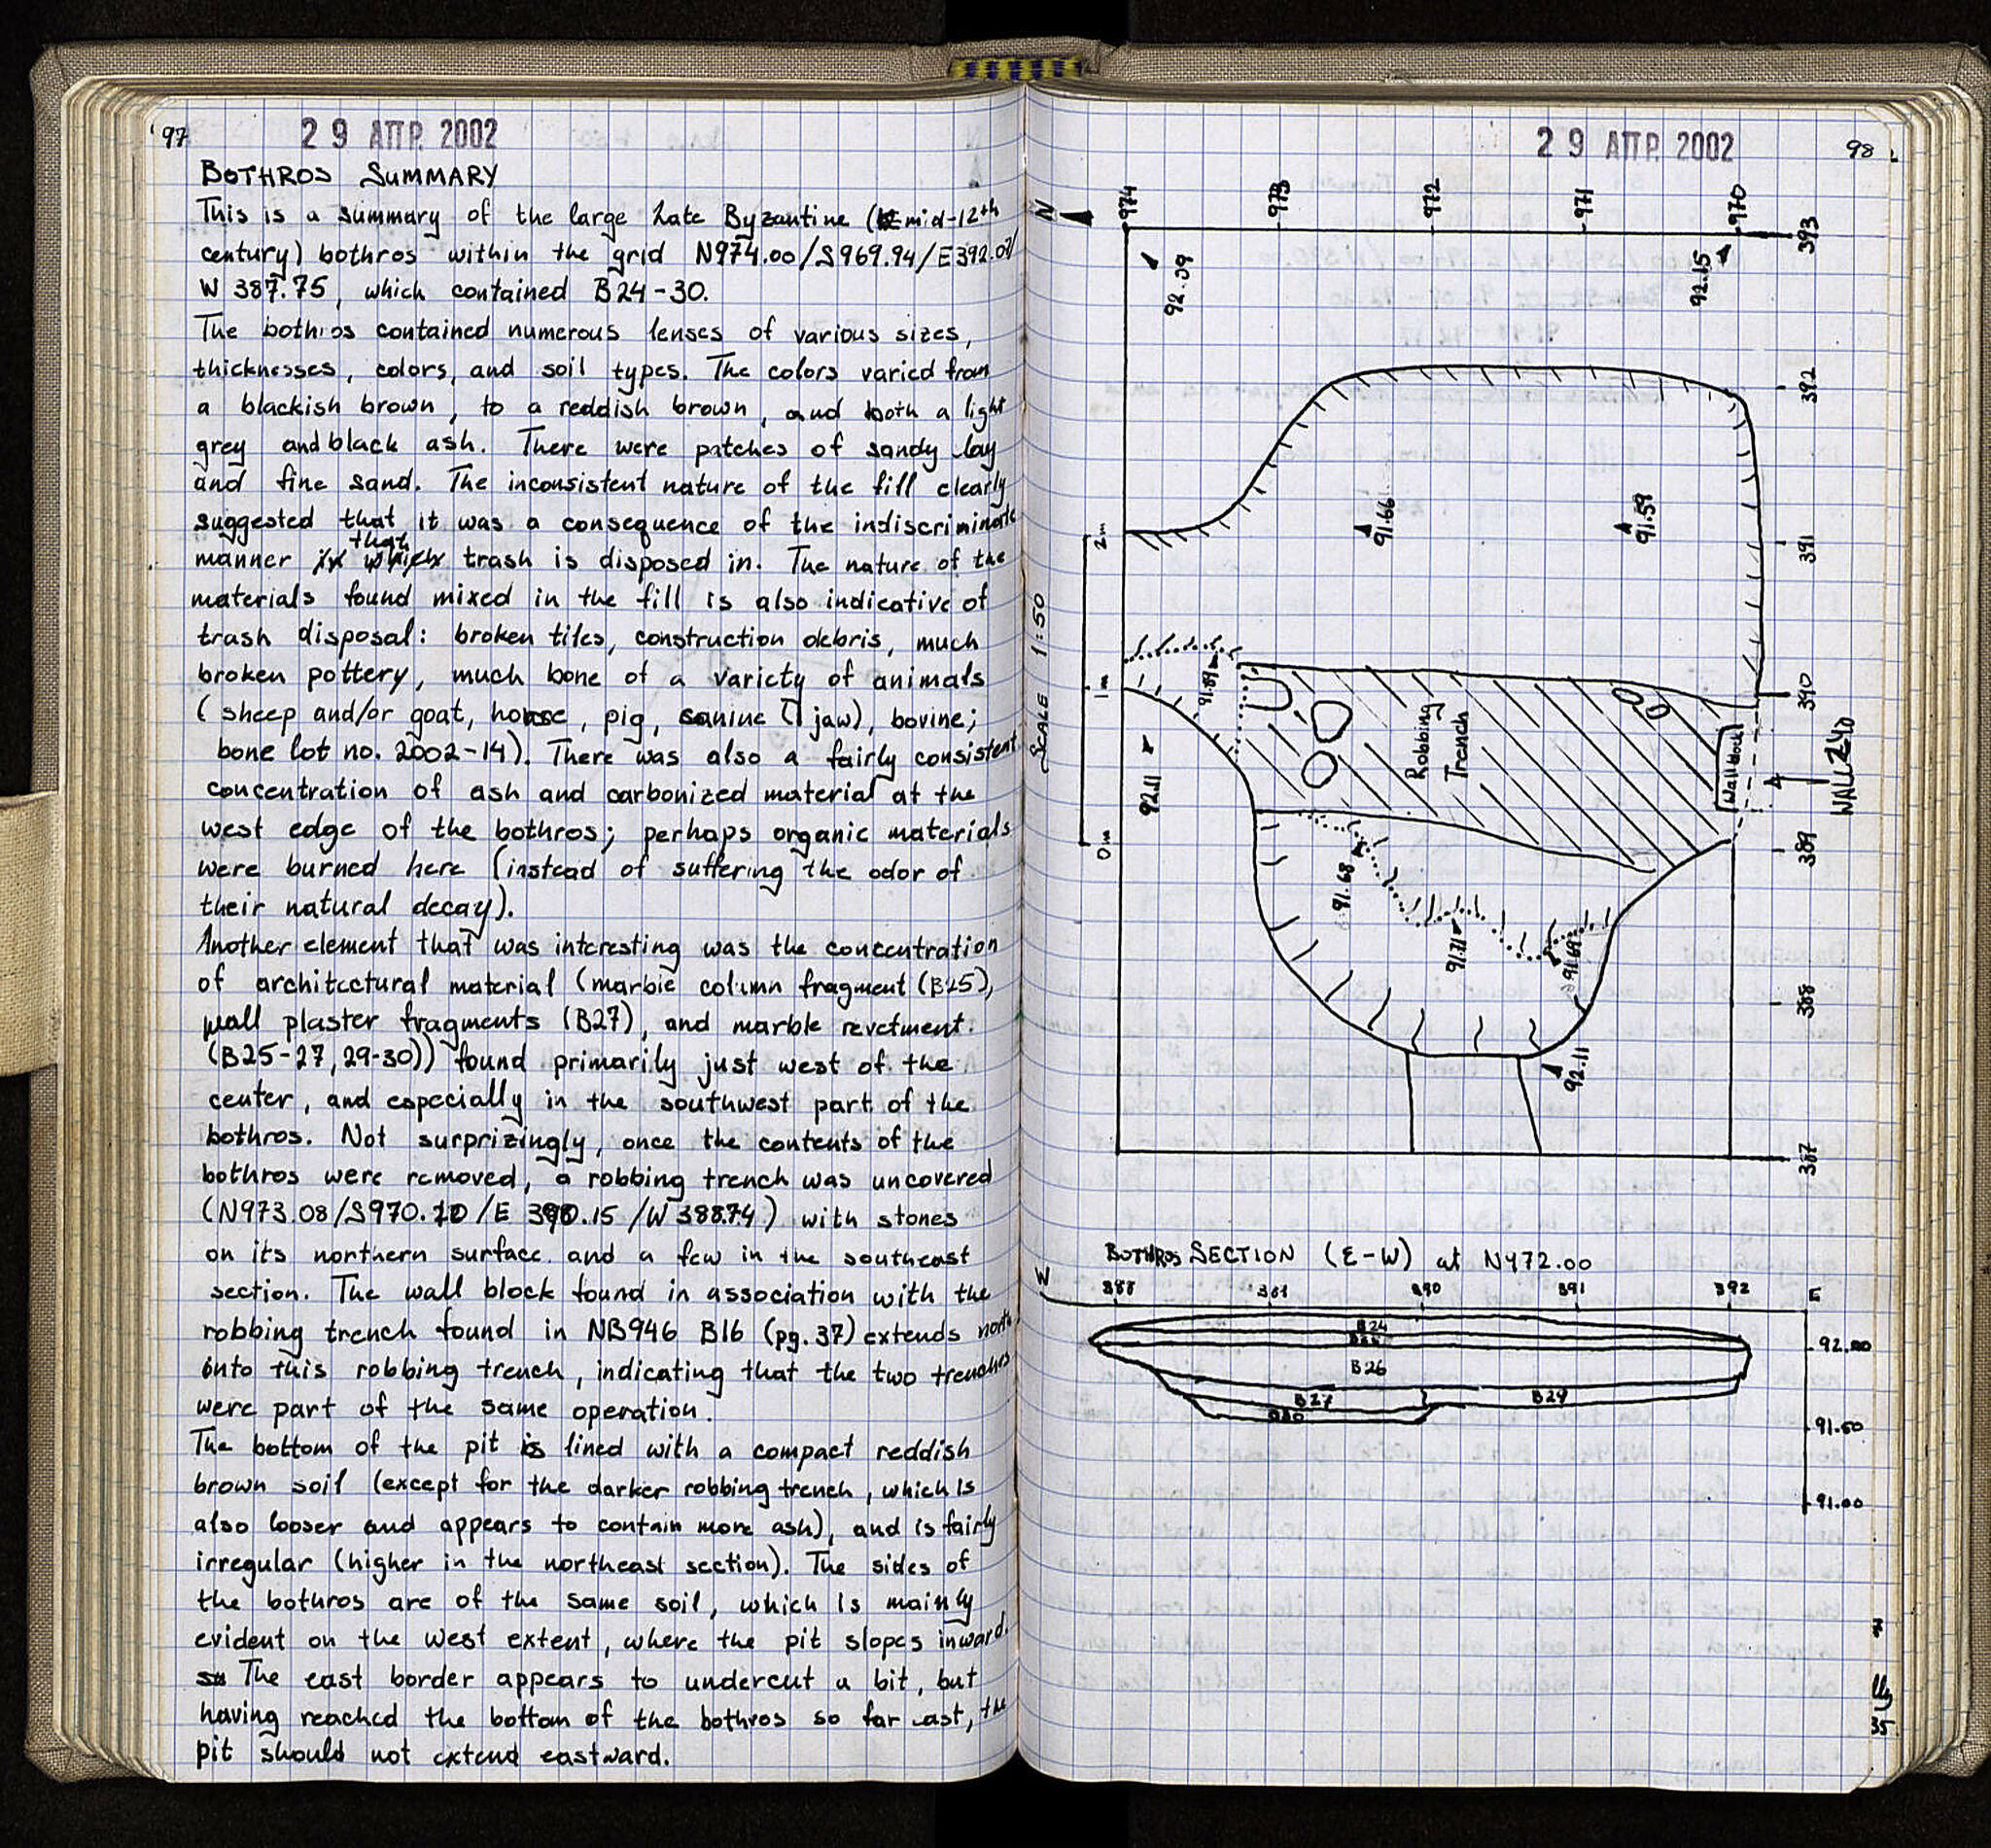 97
29 ΑΠΡ. 2002
BOTHROS SUMMARY
This is a summary of the large Late Byzantine (mid-12th
century) bothros within the grid N974.00/S969.94/E392.07/
W 387.75, which contained B24-30.
The bothros contained numerous lenses of various sizes,
thicknesses, colors, and soil types. The colors varied from
a blackish brown, to a reddish brown, and both a light
grey and black ash. There were patches of sandy clay
and fine sand. The inconsistent nature of the fill clearly
suggested that it was a consequence of the indiscriminate
manner that trash is disposed in. The nature of the
materials found mixed in the fill is also indicative of
trash disposal: broken tiles, construction debris, much
broken pottery, much bone of a variety of animals
(sheep and/or goat, horse, pig, canine (1 jaw), bovine;
bone lot no. 2002-14). There was also a fairly consistent
concentration of ash and carbonized material at the
west edge of the bothros; perhaps organic materials
were burned here (instead of suffering the odor of
their natural decay).
Another element that was interesting was the concentration
of architectural material (marble column fragment (B25),
wall plaster fragments (B27), and marble revetment.
(B25-27, 29-30)) found primarily just west of the
center, and especially in the southwest part of the
bothros. Not surprizingly, once the contents of the
bothros were removed, a robbing trench was uncovered
(N973.08/S970.10/E 390.15/W 388.74) with stones
on its northern surface and a few in the southeast
section. The wall block found in association with the
robbing trench found in NB946 B16 (pg. 37) extends north
onto this robbing trench, indicating that the two trenches
were part of the same operation.
The bottom of the pit is lined with a compact reddish
brown soil (except for the darker robbing trench, which is
also looser and appears to contain more ash), and is fairly
irregular (higher in the northeast section). The sides of
the bothros are of the same soil, which is mainly
evident on the west extent, where the pit slopes inward.
The east border appears to undercut a bit, but
having reached the bottom of the bothros so far east, the
pit should not extend eastward.
29 ΑΠΡ. 2002
98
N
974
973
972
971
970
393
92.09
92.15
392
91.66
91.59
391
2m
1m
0m
SCALE 1:50
91.89
92.11
Robbing
Trench
Wall block
390
WALL 240
389
91.68
91.71
91.69
388
92.11
387
BOTHROS SECTION (E-W) at N972.00
W
388
389
390
391
392
E
B24
B25
B26
B27
B29
B30
92.00
91.50
91.00
35